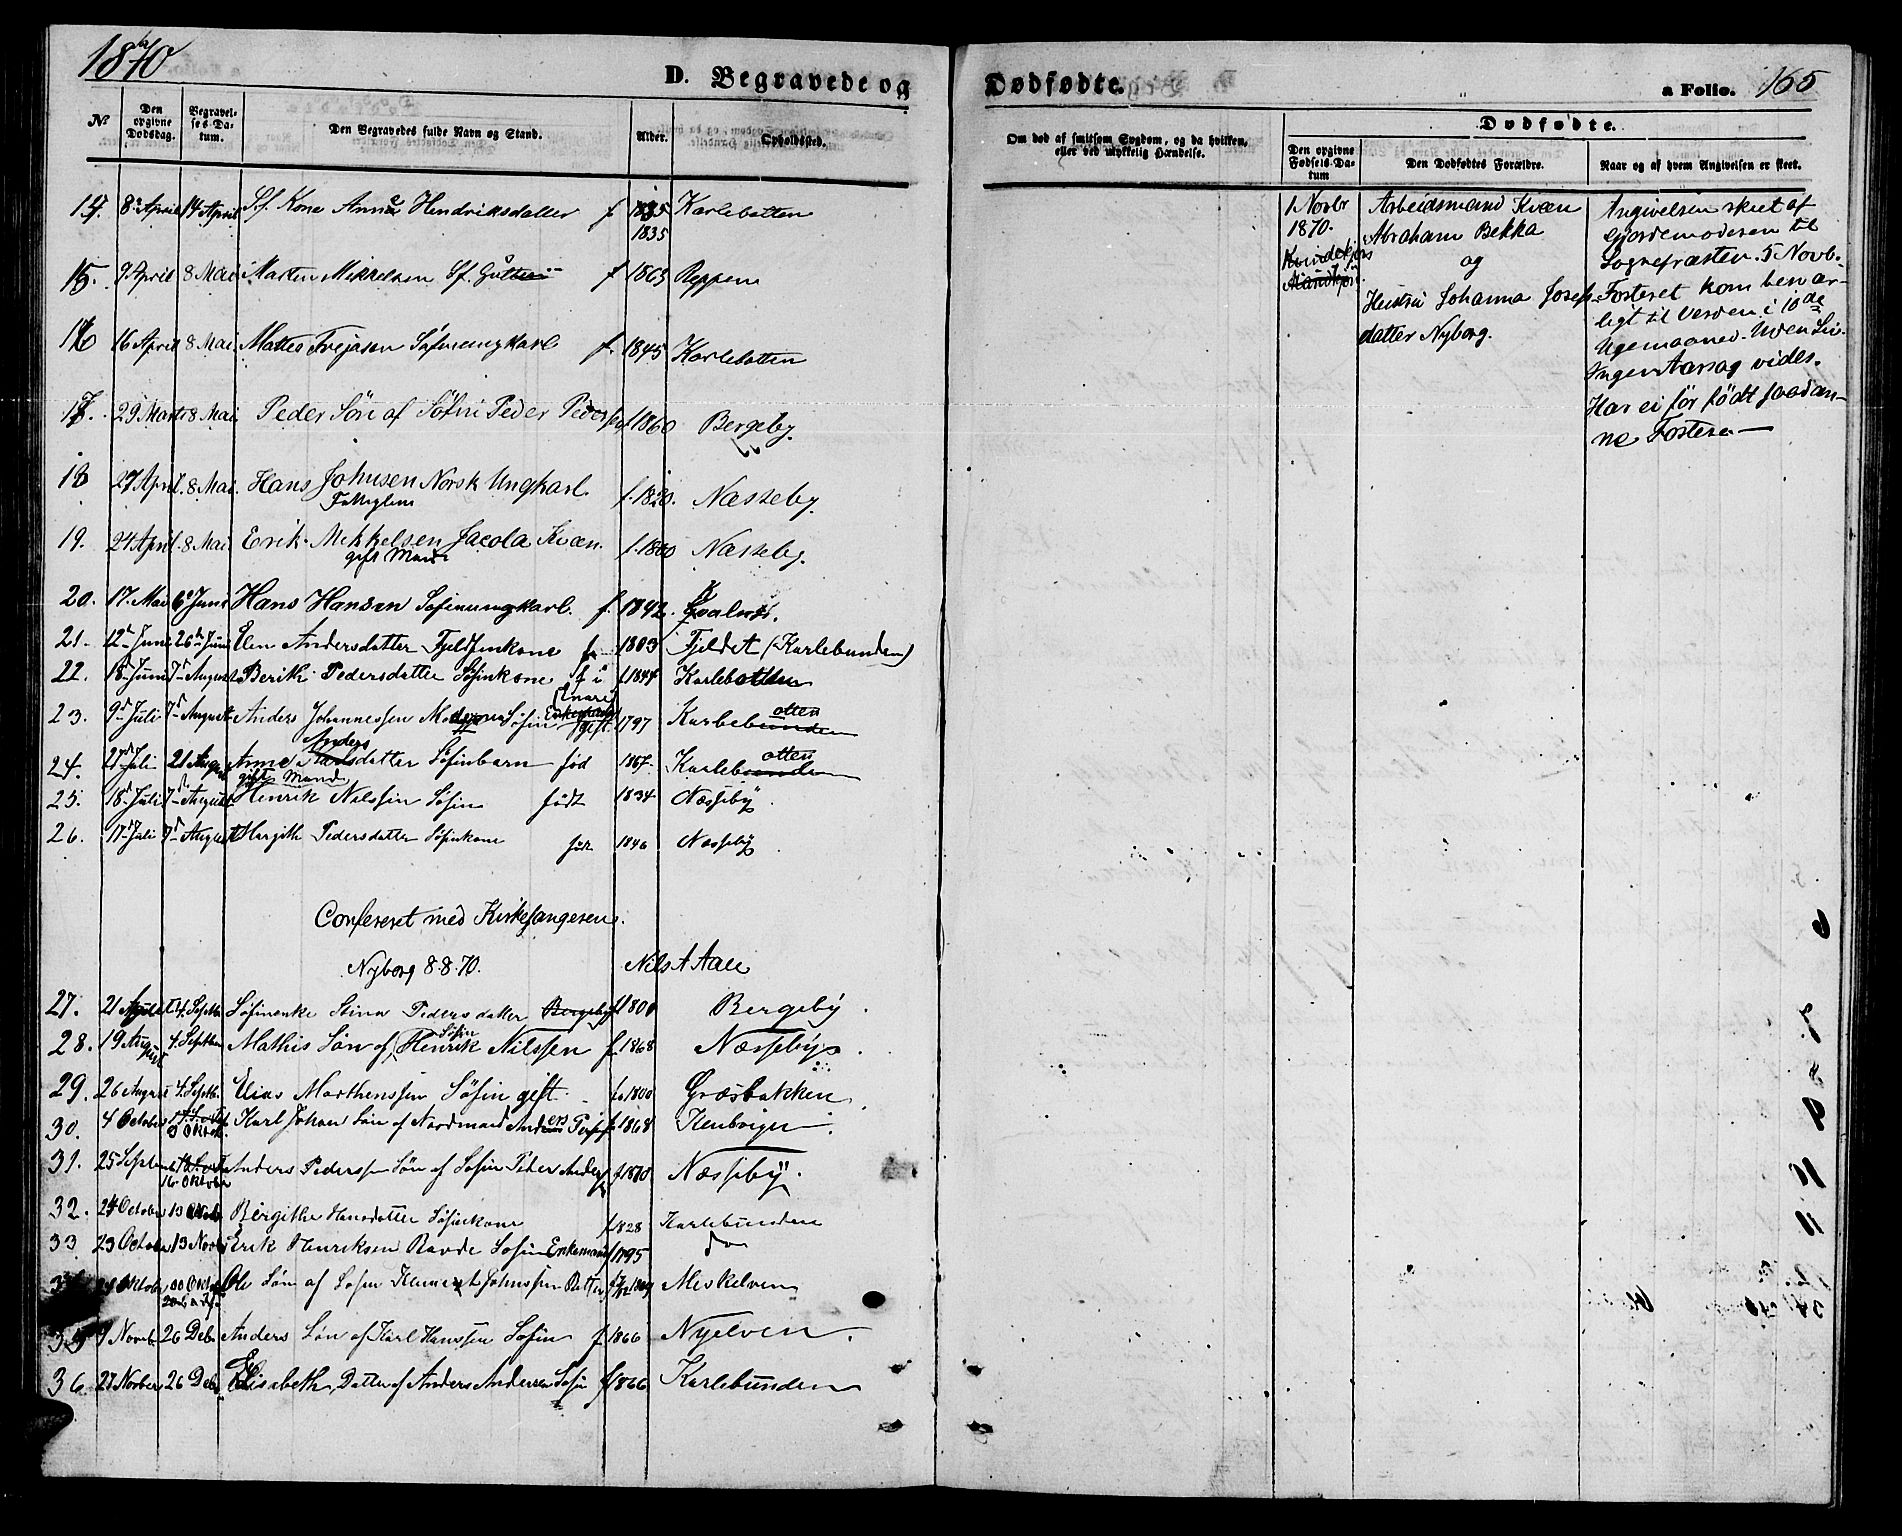 1870
D. Begravede og
Nº
Den opgivne Dødsdag.
Begravelses Datum.
Den Begravedes fulde Navn og Stand.
Alder.
Opholdssted.
14. 8de April 14 April Sf. Kone Anna Hendriksdatter f 1835 Karlebotten
1835
15. 9 April 8 Mai Morten Mikkelsen Sf. f 1863 Reppen
16 16 April 8 Mai Mattes Søfinungkarl f. 1845 Karlebotten
17. 29 Marts 8 Mai Peder Søn af Søfin Peder Pedersen f 1860 Bergeby.
18 27 April. 8 Mai. Hans Johnsen Norsk Ungkarl f. 1820. Næsseby
Fattiglem
19. 24 April. 8 Mai Erik Mikkelsen Jacola Kvæn. f. 1800 Næsseby.
gift Mand
20. 17. Mai 6 Juni Hans Hansen Søfinungkarl. f. 1842.
21. 12 Juni 26 Juni Elen Andersdatter Fjeldfinkone f. 1803 Fjeldet (Karlebunden)
22. 18 Juni 7 August Berith Pedersdatter Søfinkone f i 1844 Karlebotten
(Enare)
23. 9 Juli 7 August Anders Johannessen Søfin Enkemand gift. 1797 Karlebunden otten
Anders
24. 21 Juli 21 August Anne datter Søfinbarn fød 1867. Karlebunden otten
gift Mand
25. 18 Juli 7 August Henrik Nilssen Søfin født 1834 Næsseby.
26. 17 Juli 7 August Margith Pedersdatter Søfinkone født 1846 Næsseby
Confereret med Kirkesangeren.
Nyborg 8.8.70. Nils A Aall
27. 21 August 4. Septbr Søfinenke Stina Pedersdatter Bergeby f 1800 Bergeby.
Søfin
28. 19 August 4. Septbr Mathis Søn af Henrik Nilssen f. 1868 Næsseby.
29. 26 August 4. Septbr. Elias Marthenssen Søfin gift. f. 1800 Græsbakken
30. 4 October Karl Johan Søn af Nordmand Anders f 1868
31. 25 Septbr Anders Pederssen Søn af Søfin Peder Anders f 1870 Næsseby.
16. Oktober
32. 24 October 13 Novbr Birgithe Hansdatter Søfinkone f 1828 Karlebunden
33 23 October 13 Novbr Erik Henriksen Ravde Søfin Enkemand f 1795 do
Oktober Ole Søn af Søfin Klemet Johnssen Meskelven
35 9 Novbr 26 Debr Anders Søn af Karl Hanssen Søfin f 1866 Nyelven.
36. 27 Novber 26 Debr Elisabeth Datter af Anders Andersen Søfin f 1866 Karlebunden
Dødfødte.
a Folio. 165
Om død af smitsom Sygdom, og da hvilken, eller ved ulykkelig Hændelse.
Dødfødte.
Den opgivne Fødsels-Datum
Den Dødfødtes Forældre.
Naar og af hvem Angivelsen er skeet.
1 Novbr 1870.
Kvindekjøn
Mandkjøn
Arbeidsmand Kvæn
Abraham Bekka
og
Hustru Johanna Josefs-
datter Nyborg.
Angivelsen skeet af
Gjordemoderen til
Sognepræsten. 5 Novb.
Fosteret kom benar-
ligt til Verden i 10de
Ugemaaned. Uden Liv
Ingen Aarsag vides.
Har ei før født saadan-
ne Fostere